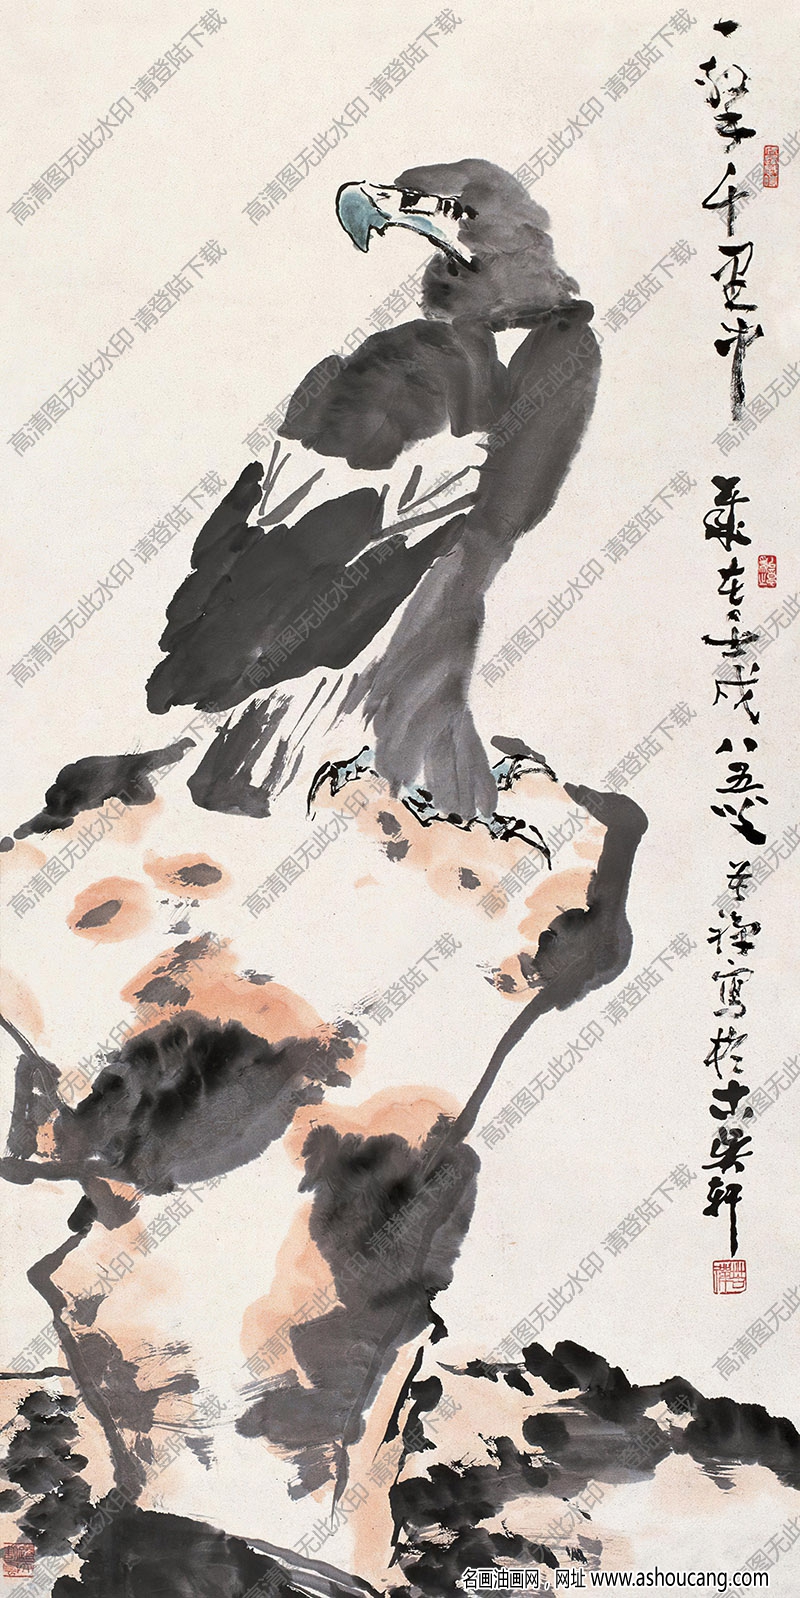 一擊千里
歲在壬戌八五叟苦禪寫於
軒
高清图无此水印 请登陆下载
名画油画网，网址 www.ashoucang.com